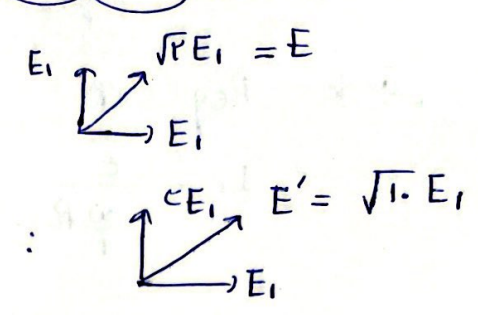 E₁ √۲ E₁ = E
E₁
: ۳E₁ E′ = √۱۰ E₁
E₁